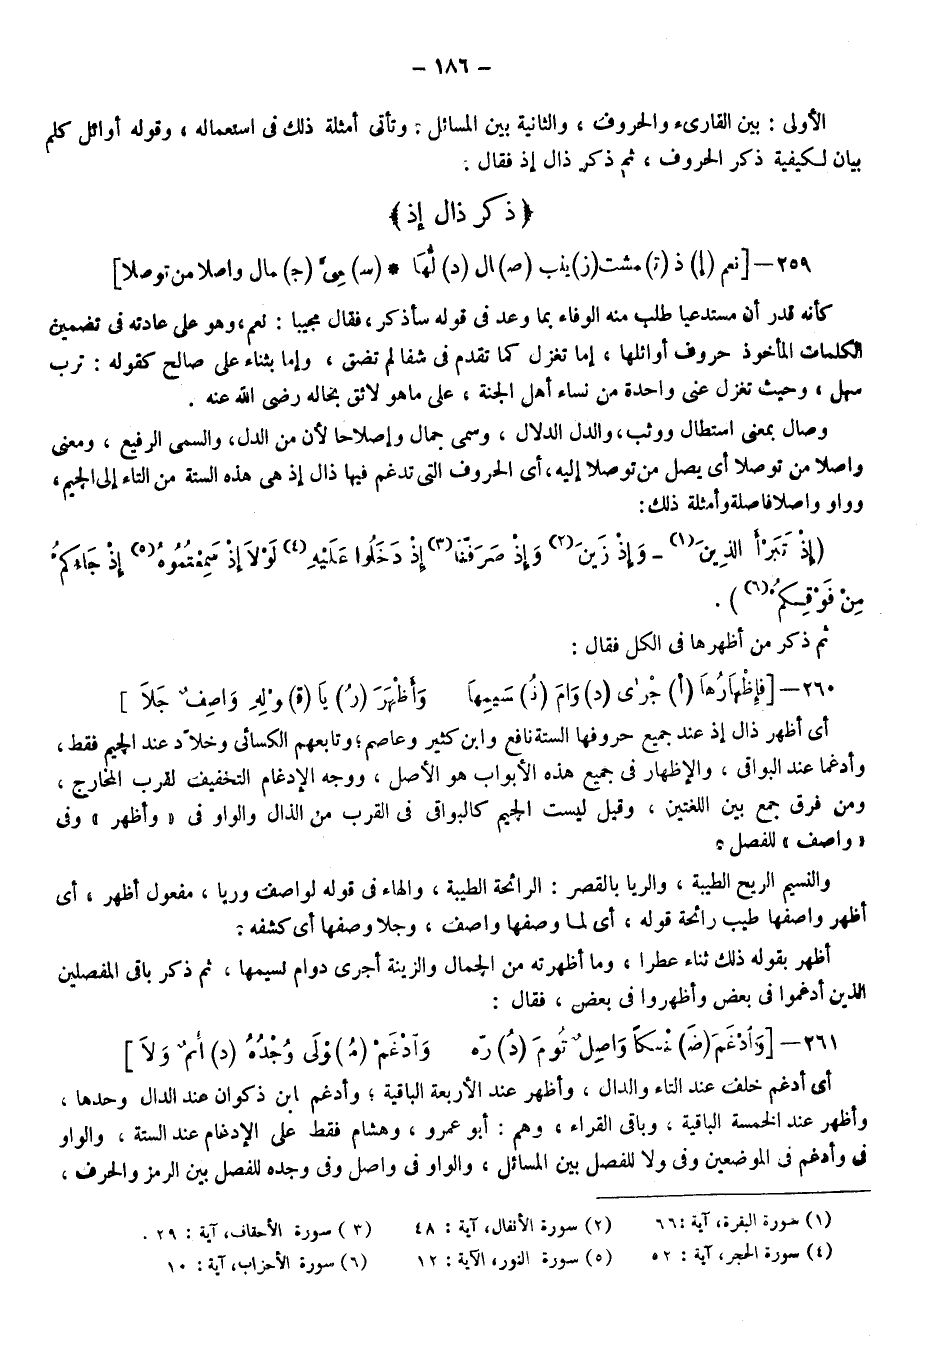 – ١٨٦ –
الأولى : بين القارىء والحروف ، والثانية بين المسائل : وتأتى أمثلة ذلك فى استعماله ، وقوله أوائل كلم
بيان لكيفية ذكر الحروف ، ثم ذكر ذال إذ فقال :
﴿ ذكر ذال إذ ﴾
٢٥٩ – [نعم (إ) ذ (ت) مشت (ز) ينب (ص) ال (د) لُّها * (س) مىَّ (ج) مال واصلا من توصلا]
كأنه قدر أن مستدعيا طلب منه الوفاء بما وعد فى قوله سأذكر ، فقال مجيبا : نعم، وهو على عادته فى تضمين
الكلمات المأخوذ حروف أوائلها ، إما تغزل كما تقدم فى شفا لم تضق ، وإما بثناء على صالح كقوله : ترب
سهل ، وحيث تغزل عنى واحدة من نساء أهل الجنة ، على ماهو لائق بخاله رضى الله عنه .
وصال بمعنى استطال ووثب، والدل الدلال ، وسمى جمال وإصلاحا لأن من الدل، والسمى الرفيع ، ومعنى
واصلا من توصلا أى يصل من توصلا إليه، أى الحروف التى تدغم فيها ذال إذ هى هذه الستة من التاء إلى الجيم،
وواو واصلا فاصلة وأمثلة ذلك :
(إِذْ تَبَرَّأَ الذِينَ(١) – وَإِذْ زَيَنَ(٢) وَإِذْ صَرَفْنَا(٣) إِذْ دَخَلُوا عَلَيْهِ(٤) لَوْلاَ إِذْ سَمِعْتُمُوهُ(٥) إِذْ جَاءُكمُ
مِنْ فَوْقِكمُ(٦) ) .
ثم ذكر من أظهرها فى الكل فقال :
٢٦٠ – [فَإِظْهَارُهَا (أَ) جْرٰى (د) وَامَ (نُ) سَيْمِهاَ وَأَظْهَرَ (رَ) يَا (ق) وْلِهِ وَاصِفٌ جَلاَ ]
أى أظهر ذال إذ عند جميع حروفها الستة نافع وابن كثير وعاصم ؛ وتابعهم الكسائى وخلاّد عند الجيم فقط،
وأدغما عند البواقى ، والإظهار فى جميع هذه الأبواب هو الأصل ، ووجه الإدغام التخفيف لقرب المخارج ،
ومن فرق جمع بين اللغتين ، وقيل ليست الجيم كالبواقى فى القرب من الذال والواو فى « وأظهر » وفى
« واصف » للفصل :
والنسيم الريح الطيبة ، والريا بالقصر : الرائحة الطيبة ، والهاء فى قوله لواصف وريا ، مفعول أظهر ، أى
أظهر واصفها طيب رائحة قوله ، أى لما وصفها واصف ، وجلا وصفها أى كشفه :
أظهر بقوله ذلك ثناء عطرا ، وما أظهرته من الجمال والزينة أجرى دوام نسيمها ، ثم ذكر باقى المفصلين
الذين أدغموا فى بعض وأظهروا فى بعض ، فقال :
٢٦١ – [وَأَدْغَمَ (ضَ) نْكاً وَاصِلٌ تُومَ (دُ) رّه وَأَدْغَمْ (مُ) وْلَى وُجْدُهُ (د) أَمٌ وَلاَ ]
أى أدغم خلف عند التاء والدال ، وأظهر عند الأربعة الباقية ؛ وأدغم ابن ذكوان عند الدال وحدها ،
وأظهر عند الخمسة الباقية ، وباقى القراء ، وهم : أبو عمرو ، وهشام فقط على الإدغام عند الستة ، والواو
فى وأدغم فى الموضعين وفى ولا للفصل بين المسائل ، والواو فى واصل وفى وجده للفصل بين الرمز والحرف ،
(١) سورة البقرة، آية : ٦٦ (٢) سورة الأنفال، آية : ٤٨ (٣) سورة الأحقاف، آية : ٢٩ .
(٤) سورة الحجر، آية : ٥٢ (٥) سورة النور، الآية : ١٢ (٦) سورة الأحزاب، آية : ١٠